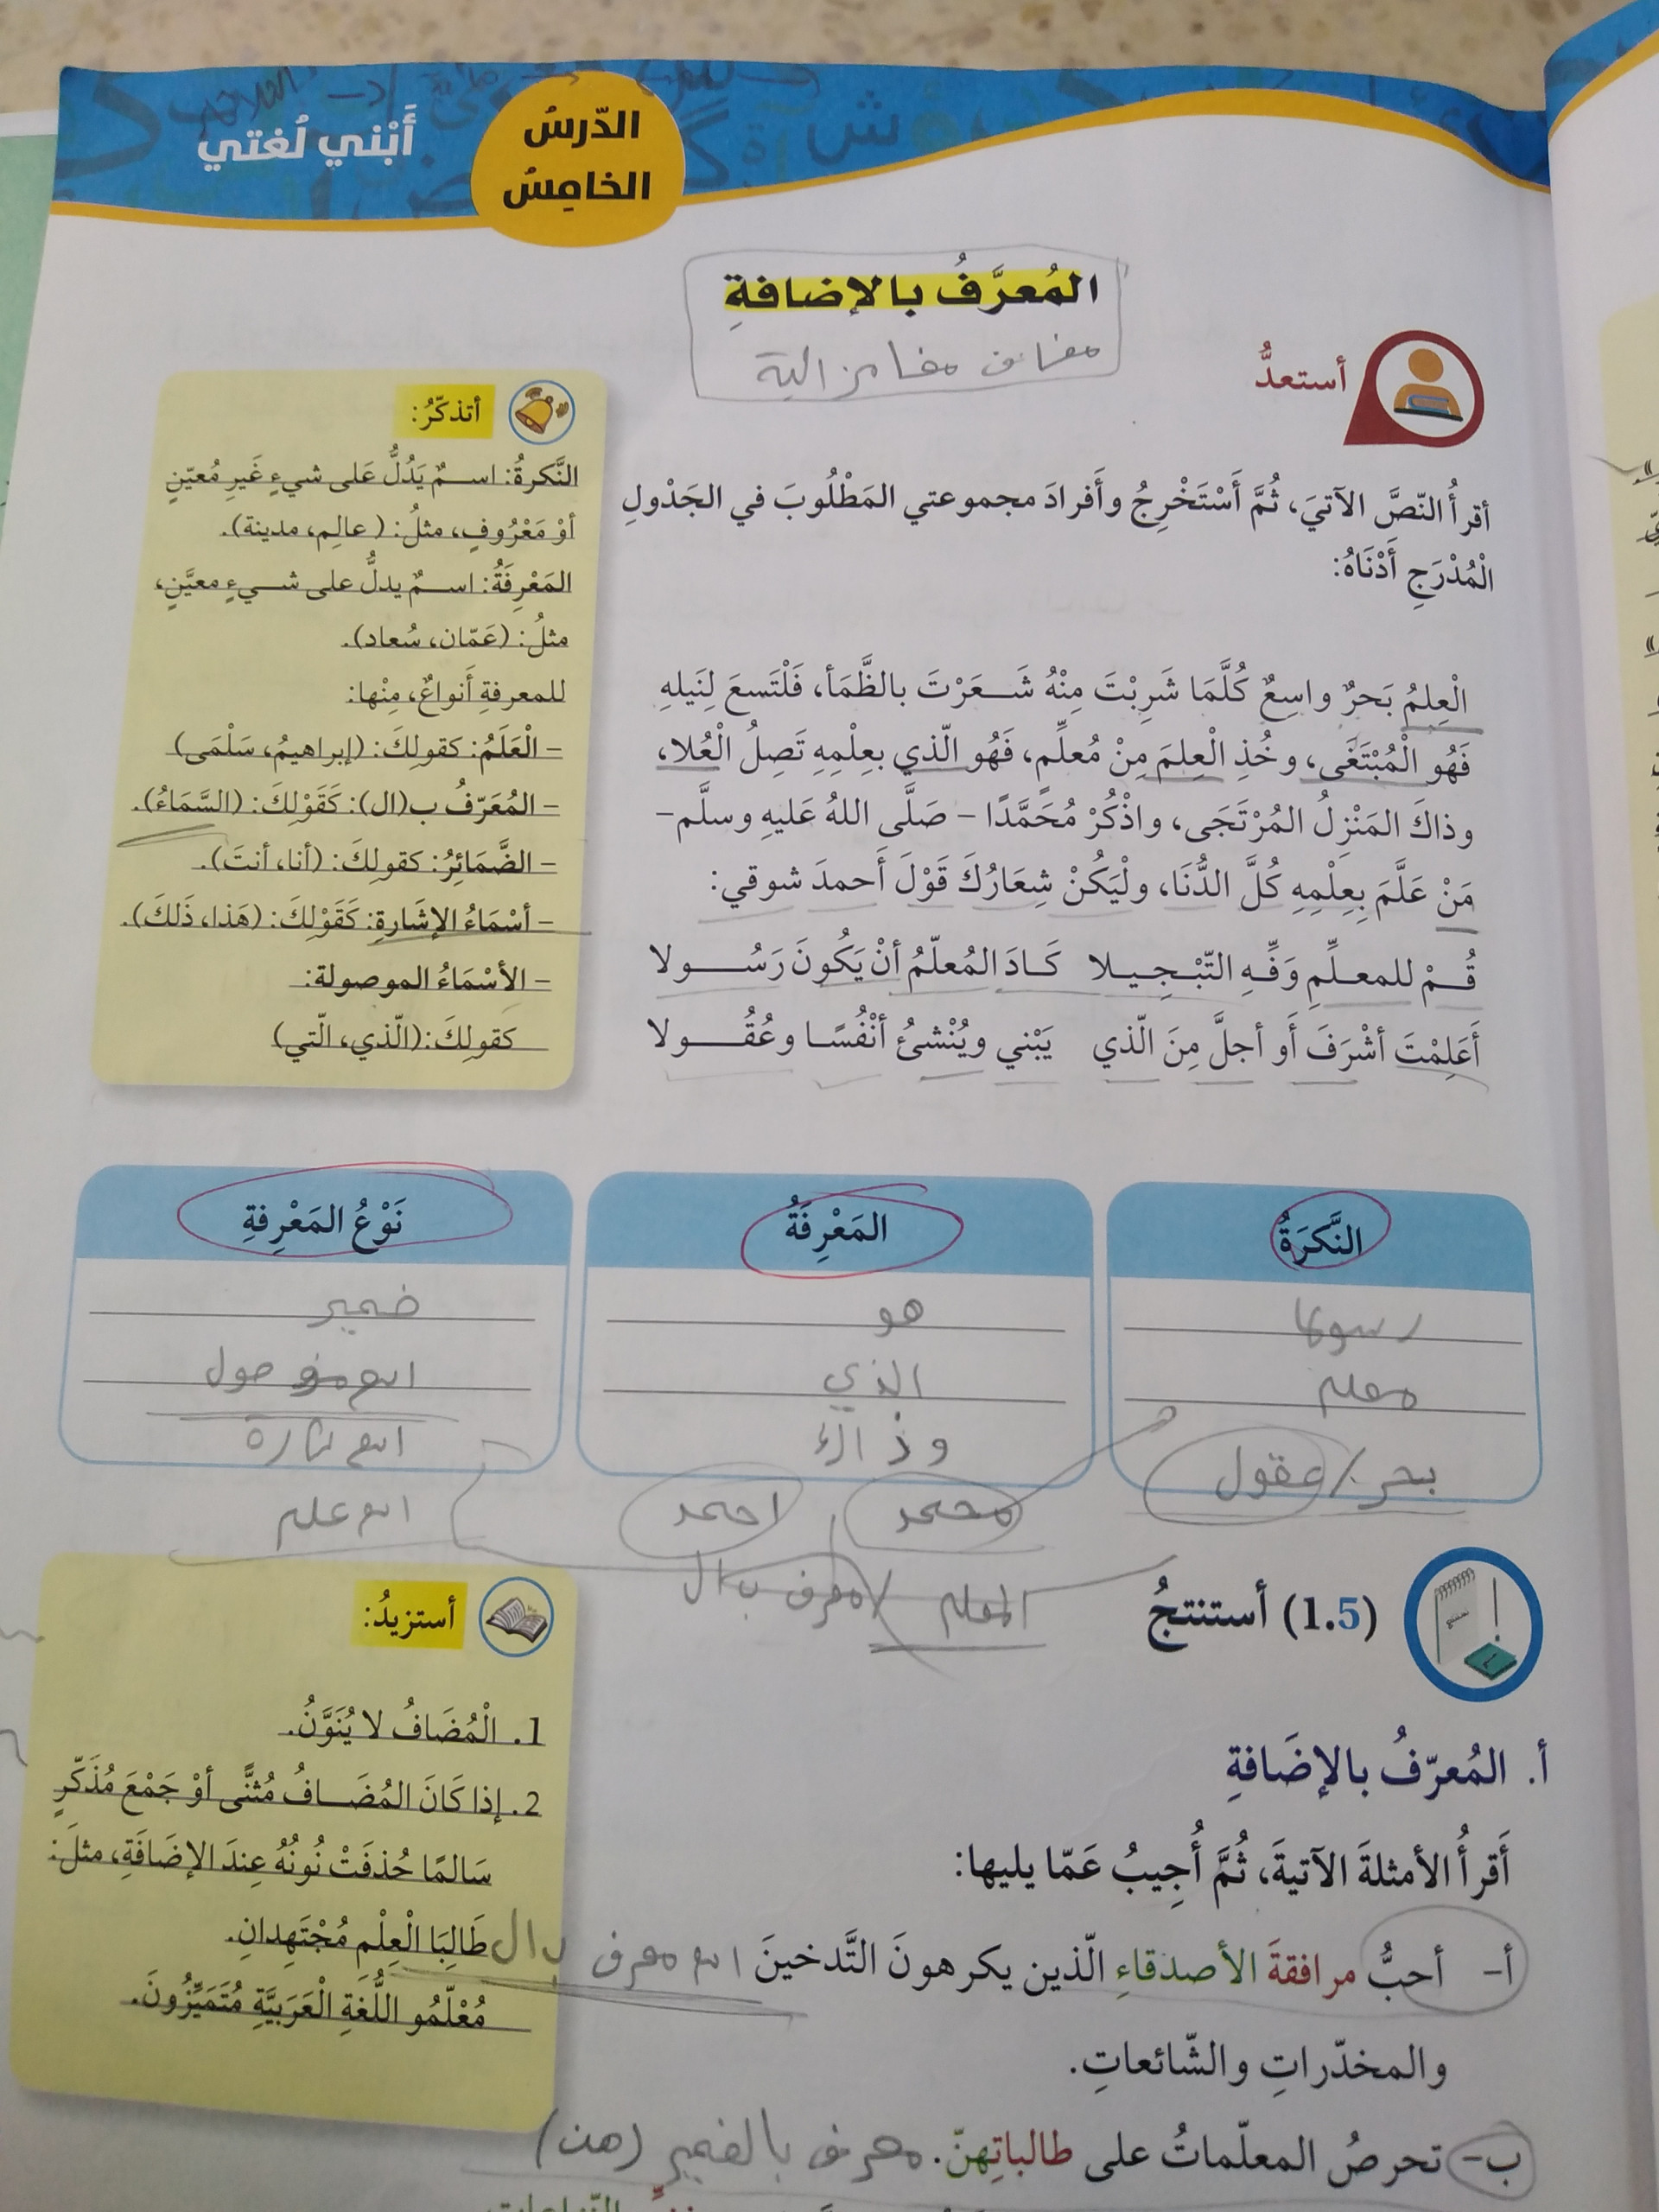 الدّرسُ
الخامِسُ
أَبْني لُغتي
المُعرَّفُ بالإضافةِ
مضاف مضاف الية
أستعدُّ
أقرأُ النّصَّ الآتيَ، ثُمَّ أَسْتَخْرِجُ وأَفرادَ مجموعتي المَطْلُوبَ في الجَدْولِ
الْمُدْرَجِ أَدْنَاهُ:
الْعِلمُ بَحرٌ واسِعٌ كُلَّمَا شَرِبْتَ مِنْهُ شَعَرْتَ بالظَّمَأ، فَلْتَسعَ لِنَيلهِ
فَهُو الْمُبْتَغَى، وخُذِ الْعِلمَ مِنْ مُعلِّمٍ، فَهُو الّذي بعِلْمِهِ تَصِلُ الْعُلا،
وذاكَ المَنْزِلُ المُرْتَجَى، واذْكُرْ مُحَمَّدًا - صَلَّى اللهُ عَليهِ وسلَّم-
مَنْ عَلَّمَ بِعِلْمِهِ كُلَّ الدُّنَا، ولْيَكُنْ شِعَارُكَ قَوْلَ أَحمدَ شوقي:
قُمْ للمعلِّمِ وَفِّهِ التّبْجِيلا كَادَ المُعلّمُ أنْ يَكُونَ رَسُولا
أَعَلِمْتَ أشْرَفَ أَو أجلَّ مِنَ الّذي يَبْني ويُنْشئُ أنْفُسًا وعُقُولا
أتذكّرُ:
النَّكرةُ: اسمٌ يَدُلُّ عَلى شيءٍ غَيرِ مُعيّنٍ
أوْ مَعْرُوفٍ، مثلُ: ( عالِم، مدينة).
المَعْرِفَةُ: اسمٌ يدلُّ على شيءٍ معيَّنٍ،
مثلُ: (عَمّان، سُعاد).
للمعرفةِ أَنواعٌ، مِنْها:
- الْعَلَمُ: كقولِكَ: (إبراهيمُ، سَلْمَى)
- المُعَرّفُ ب(ال): كَقَوْلِكَ: (السَّمَاءُ).
- الضَّمَائِرُ: كقولِكَ: (أنا، أنتَ).
- أسْمَاءُ الإشَارةِ: كَقَوْلِكَ: (هَذا، ذَلكَ).
- الأسْمَاءُ الموصولة:
كقولِكَ: (الّذي، الّتي)
النَّكَرَةُ المَعْرِفَةُ نَوْعُ المَعْرِفةِ
رسولا هو ضمير
معلم الذي اسم موصول
بحر / عقول وذاك اسم اشارة
محمد احمد اسم علم
المعلم / معرف ب ال
(1.5) أستنتجُ
أ. المُعرّفُ بالإضَافةِ
أَقرأُ الأمثلةَ الآتيةَ، ثُمَّ أُجِيبُ عَمّا يليها:
أ- أحبُّ مرافقةَ الأصدقاءِ الّذين يكرهونَ التَّدخينَ اسم معرف ب ال
والمخدّراتِ والشّائعاتِ.
ب- تحرصُ المعلّماتُ على طالباتِهنّ. معرف بالضمير (هن)
أستزيدُ:
1. الْمُضَافُ لا يُنَوَّنُ.
2. إذا كَانَ المُضَافُ مُثنًّى أوْ جَمْعَ مُذَكّرٍ
سَالمًا حُذفَتْ نُونُهُ عِندَ الإضَافَةِ، مثلَ:
طَالِبَا الْعِلْم مُجْتَهِدانِ.
مُعْلّمُو اللُّغَةِ الْعَرَبيَّةِ مُتَمَيِّزُونَ.